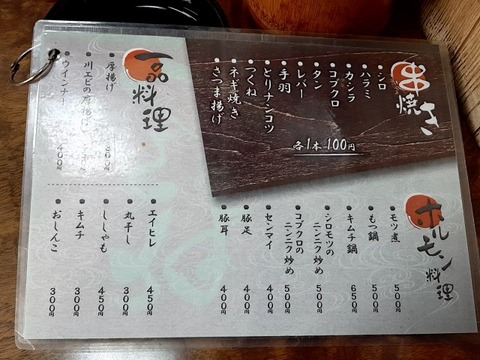 串焼き
シロ
ハラミ
カシラ
コブクロ
タン
レバー
手羽
とりナンコツ
つくね
ネギ焼き
さつま揚げ
各1本100円
ホルモン料理
モツ煮 500円
もつ鍋 500円
キムチ鍋 650円
シロモツの
ニンニク炒め 500円
コブクロの
ニンニク炒め 500円
センマイ 400円
豚足 400円
豚耳 400円
一品料理
厚揚げ
川エビの唐揚げ
ウインナー 400円
エイヒレ 450円
丸干し 300円
ししゃも 450円
キムチ 300円
おしんこ 300円